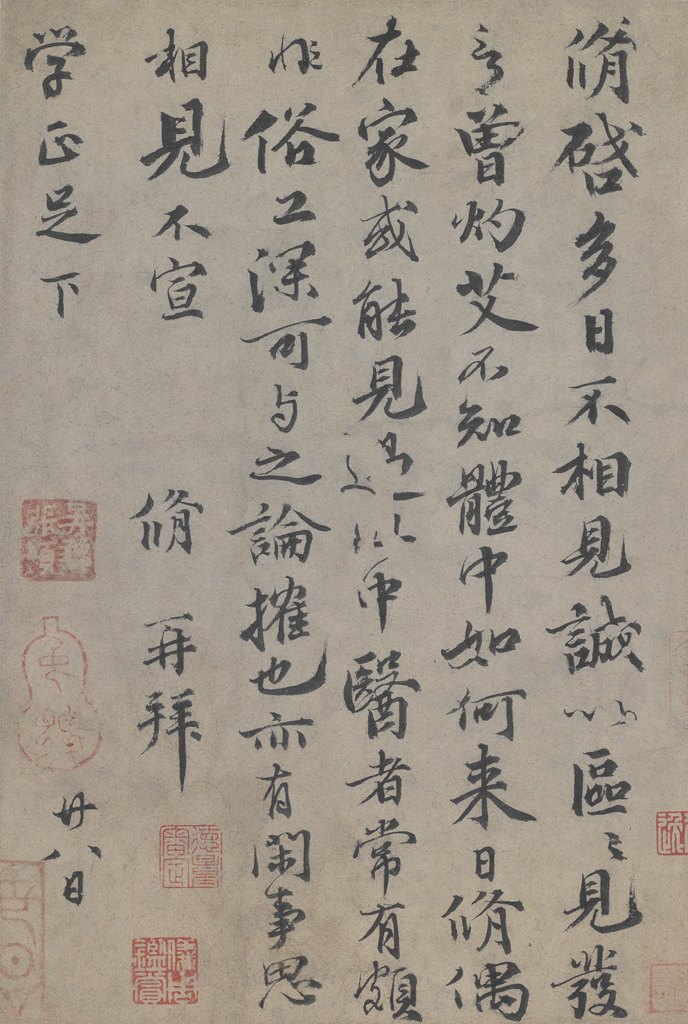 脩啓多日不相見誠以區〻見發
言曾灼艾不知體中如何来日脩偶
在家或能見過此中醫者常有頗
非俗工深可与之論搉也亦有閑事思
相見不宣
脩 再拜
学正足下
廿八日